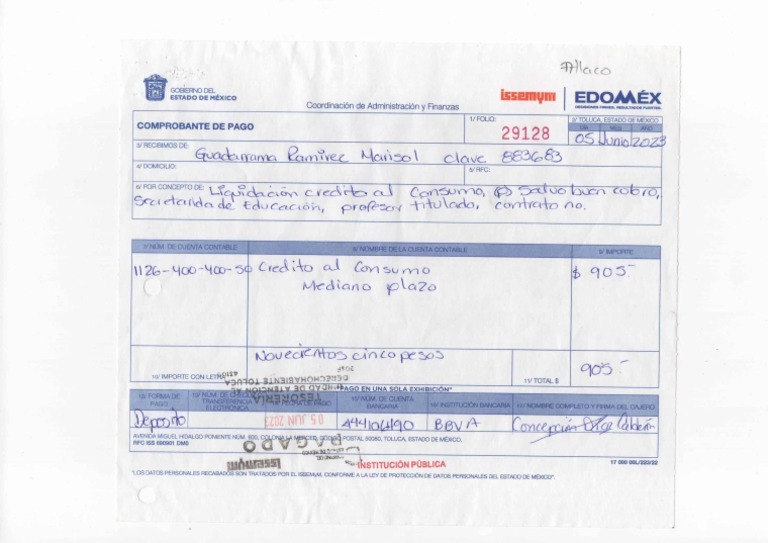 Atlaco
GOBIERNO DEL
ESTADO DE MÉXICO
issemym
EDOMÉX
DECISIONES FIRMES, RESULTADOS FUERTES.
Coordinación de Administración y Finanzas
COMPROBANTE DE PAGO
1/ FOLIO:
29128
2/ TOLUCA, ESTADO DE MÉXICO
DÍA MES AÑO
05 Junio 2023
3/ RECIBIMOS DE:
Guadarrama Ramirez Marisol clave 883683
4/ DOMICILIO:
5/ RFC:
6/ POR CONCEPTO DE: Liquidación credito al Consumo, salvo buen cobro,
Secretaria de Educación, profesor titulado, contrato no.
7/ NÚM. DE CUENTA CONTABLE
8/ NOMBRE DE LA CUENTA CONTABLE
9/ IMPORTE
1126-400-400-50 Credito al Consumo $ 905-
Mediano plazo
Novecientos cinco pesos
10/ IMPORTE CON LETRA
11/ TOTAL $
905-
UNIDAD DE ATENCIÓN AL
DERECHOHABIENTE TOLUCA
TESORERÍA
PAGO EN UNA SOLA EXHIBICIÓN"
FORMA DE
PAGO
NÚM. DE CHEQUE
TRANSFERENCIA
ELECTRÓNICA
FECHA DE PAGO
NÚM. DE CUENTA
BANCARIA
INSTITUCIÓN BANCARIA
NOMBRE COMPLETO Y FIRMA DEL CAJERO
Deposito
05 JUN 2023
444104190
BBVA
Concepción Díaz Calderón
AVENIDA MIGUEL HIDALGO PONIENTE NÚM. 600, COLONIA LA MERCED, CÓDIGO POSTAL 50080, TOLUCA, ESTADO DE MÉXICO.
RFC ISS 690901 DM9
PAGADO
issemym
INSTITUCIÓN PÚBLICA
"LOS DATOS PERSONALES RECABADOS SON TRATADOS POR EL ISSEMYM, CONFORME A LA LEY DE PROTECCIÓN DE DATOS PERSONALES DEL ESTADO DE MÉXICO".